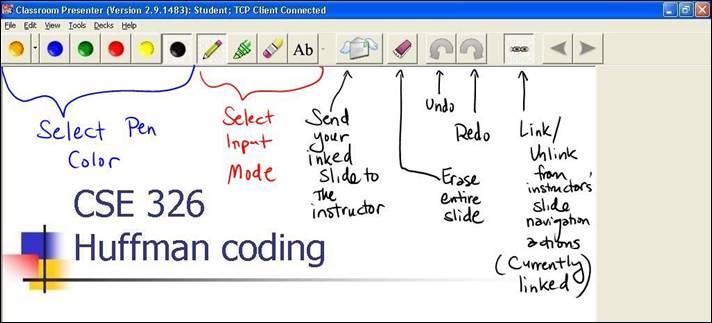 Classroom Presenter (Version 2.9.1483): Student; TCP Client Connected
File Edit View Tools Decks Help
Ab
Select Pen
Color
Select
Input
Mode
Send
your
inked
slide to
The
instructor
Erase
entire
slide
Undo
Redo
Link/
Unlink
from
instructors'
slide
navigation
actions
(Currently
linked)
CSE 326
Huffman coding